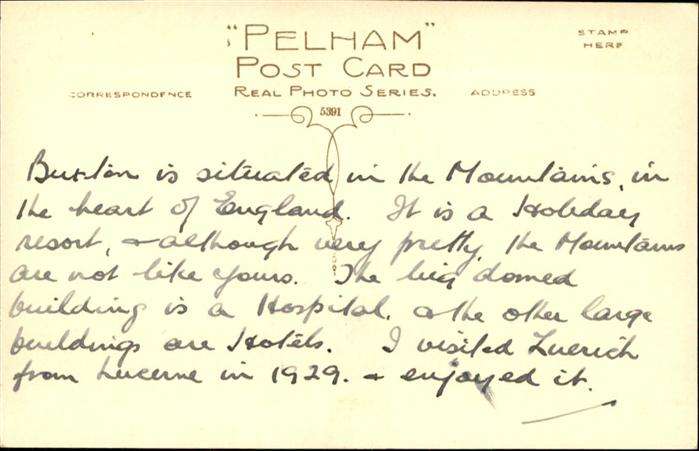 "PELHAM"
POST CARD
REAL PHOTO SERIES.
STAMP
HERE
CORRESPONDENCE
ADDRESS
5391
Buxton is situated in the Mountains, in
the heart of England. It is a Holiday
resort, & although very pretty, the Mountains
are not like yours. The big domed
building is a Hospital, & the other large
buildings are Hotels. I visited Zuerich
from Lucerne in 1929. & enjoyed it.